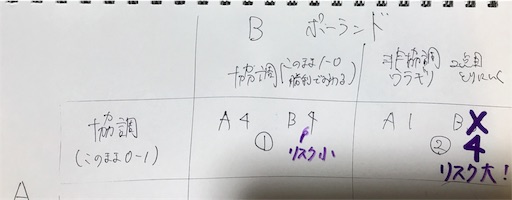 B ポーランド
協調(このまま1-0
勝利でおわる)
非協調
ウラギリ
2点目
とりにいく
協調
(このまま0-1)
A 4 B 4
①
リスク小
A 1 B X
② 4
リスク大!
A